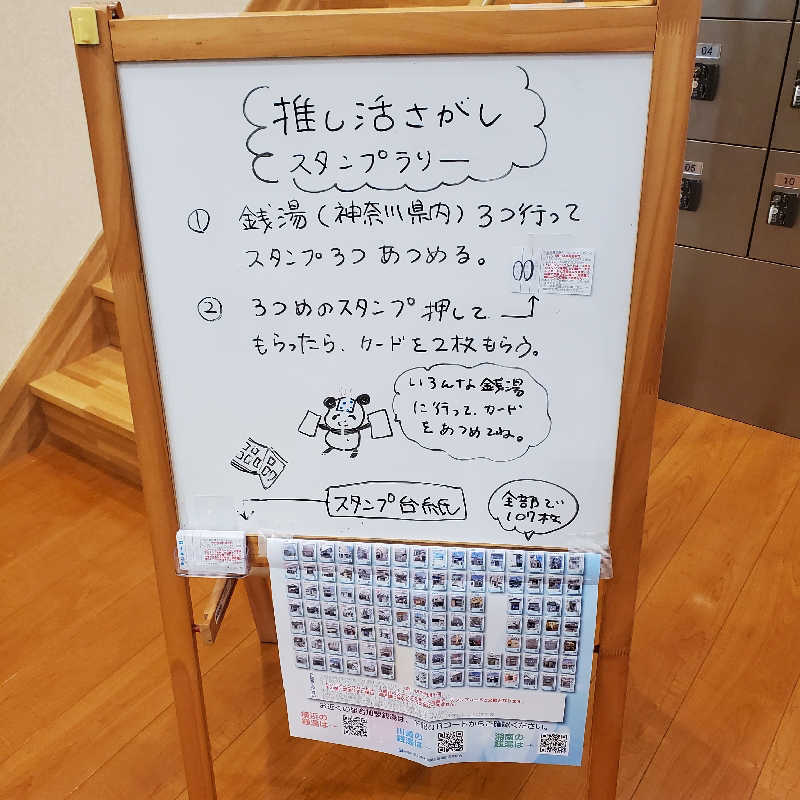 推し活さがし
スタンプラリー
① 銭湯(神奈川県内)3つ行って
スタンプ3つ あつめる。
② 3つめのスタンプ 押して
もらったら、カードを2枚もらう。
いろんな銭湯
に行って、カード
をあつめてね。
スタンプ台紙
全部で
107枚
横浜の
銭湯は
川崎の
銭湯は
湘南の
銭湯は
04
05
10